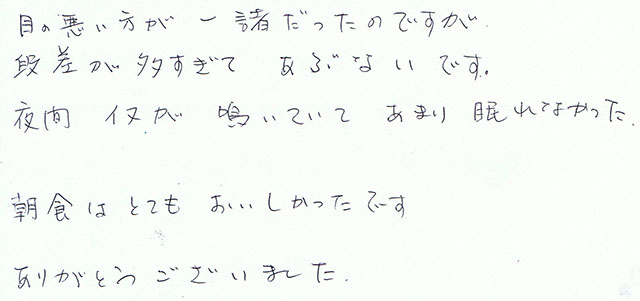 目の悪い方が 一諸だったのですが
段差が多すぎて あぶないです。
夜間 イヌが 鳴いていて あまり 眠れなかった.
朝食は とても おいしかったです
ありがとう ございました.